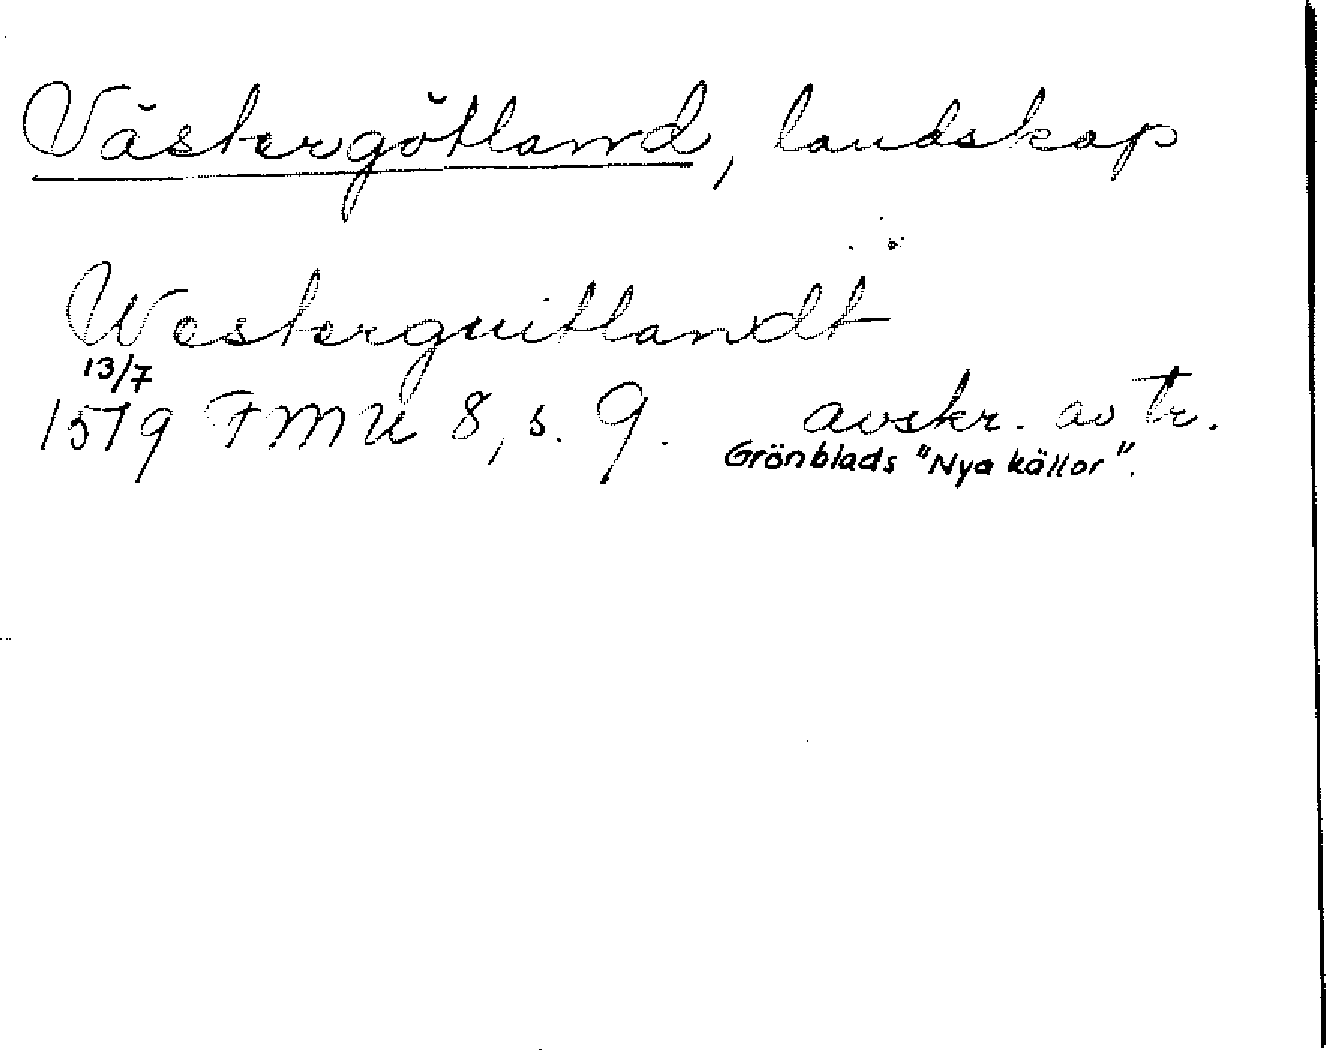 Västergötland, landskap
Westerguitlandt
13/7
1519 FMU 8, s. 9. avskr. av tr.
Grönblads "Nya källor".